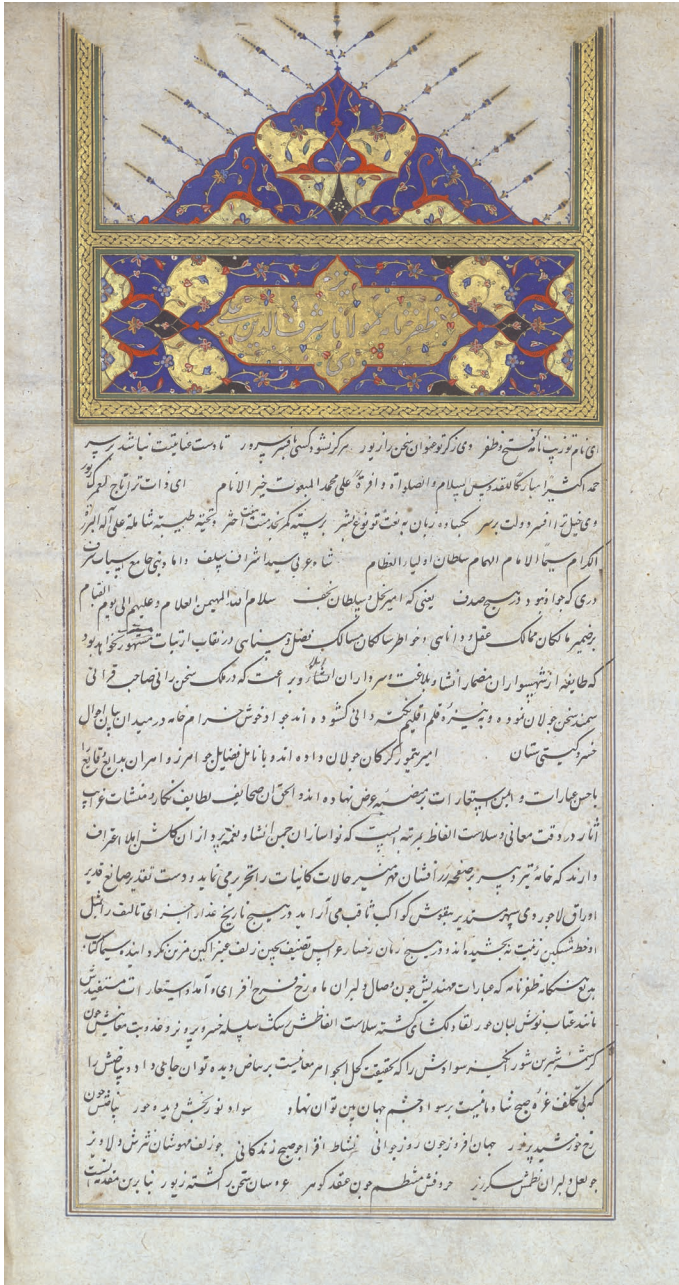 ظفرنامه مولانا شرف الدین علی
یزدی
ای نام تو زینت نامه فتح و ظفر وی ذکر تو عنوان سخن را زیور هرگز نشود کسی بافسر سرور تا دست عنایتت نباشد بر سر
حمدا کثیرا مبارکا للقدوس السلام والصلوات وافرة علی محمد المبعوث خیر الانام ای ذات ترا تاج لعمرک
وی خیل ترا افسر دولت بر سر بنعت تو نوع بشر بر بسته کمر خدمتت و تحیة طیبة شاملة علی آله البررة
الکرام سیما الامام الهمام سلطان اولیاء العظام شاه عربی سید اشراف سلف
دری که چو او نبود در هیچ صدف یعنی که امیر نحل و سلطان نجف سلام الله المهیمن العلام و علیهم الی یوم القیام
بر ضمیر مالکان ممالک عقل و دانایی و خواطر سالکان مسالک فضل و بینایی در نقاب ارتیاب مستور نخواهد بود
که طایفه از شهسواران مضمار انشا و بلاغت و سرداران وبراعت که در ملک سخن رانی صاحب قرانی
سمند سخن جولان نموده و به نیزه قلم اقلیم نکته دانی گشوده اند جواد خوش خرام خامه در میدان بیان احوال
خسرو گیتی ستان امیر تیمور گرکان جولان داده اند و بانامل فضایل جواهر زواهر آن بدایع وقایع را
باحسن عبارات و ایمن استعارات بر منصه عرض نهاده اند و الحق آن صحایف لطایف نگار و منشات غرایب
آثار در دقت معانی و سلاست الفاظ بمرتبه ایست که نواسازان چمن انشا و نغمه پردازان گلشن املا اعتراف
دارند که خامه تیر دبیر بر صفحه زرافشان مهر منیر حالات کاینات را تحریر می نماید و دست تقدیر صانع قدیر
اوراق لاجوردی سپهر مستدیر بنقوش کواکب ثاقب می آراید در هیچ تاریخ عذار اجزای تالیف را مثل
او خط مشکین زینت نبخشیده اند و در هیچ زمان رخسار عرایس تصنیف بچنین زلف عنبر آگین مزین نکرد انیده سیما کتاب
بدیع ظفرنامه که عبارات مهذبش چون وصال دلبران ماه رخ فرح افزای آمد و استعارات مستفیدش
مانند عتاب نوش لبان حور لقا دلگشای گشته سلاست الفاظش رشک سلسله خسرو پرویز و عذوبت معانیش چون
کرشمه شیرین شورانگیز سوادش را که بحقیقت کحل الجواهر معانیست بر بیاض دیده توان جای داد و بیاضش را
که بی تکلف غره صبح شادمانیست بر سواد چشم جهان بین توان نهاد سواد نوربخش دیده حور بیاضش چون
رخ خورشید پر نور جهان افروز چون روز جوانی نشاط افزا چو صبح زندگانی چو زلف مهوشان نثرش دلاویز
چو لعل دلبران نظمش شکرریز حروفش منتظم چون عقد گوهر عروسان سخن را گشته زیور بنابرین